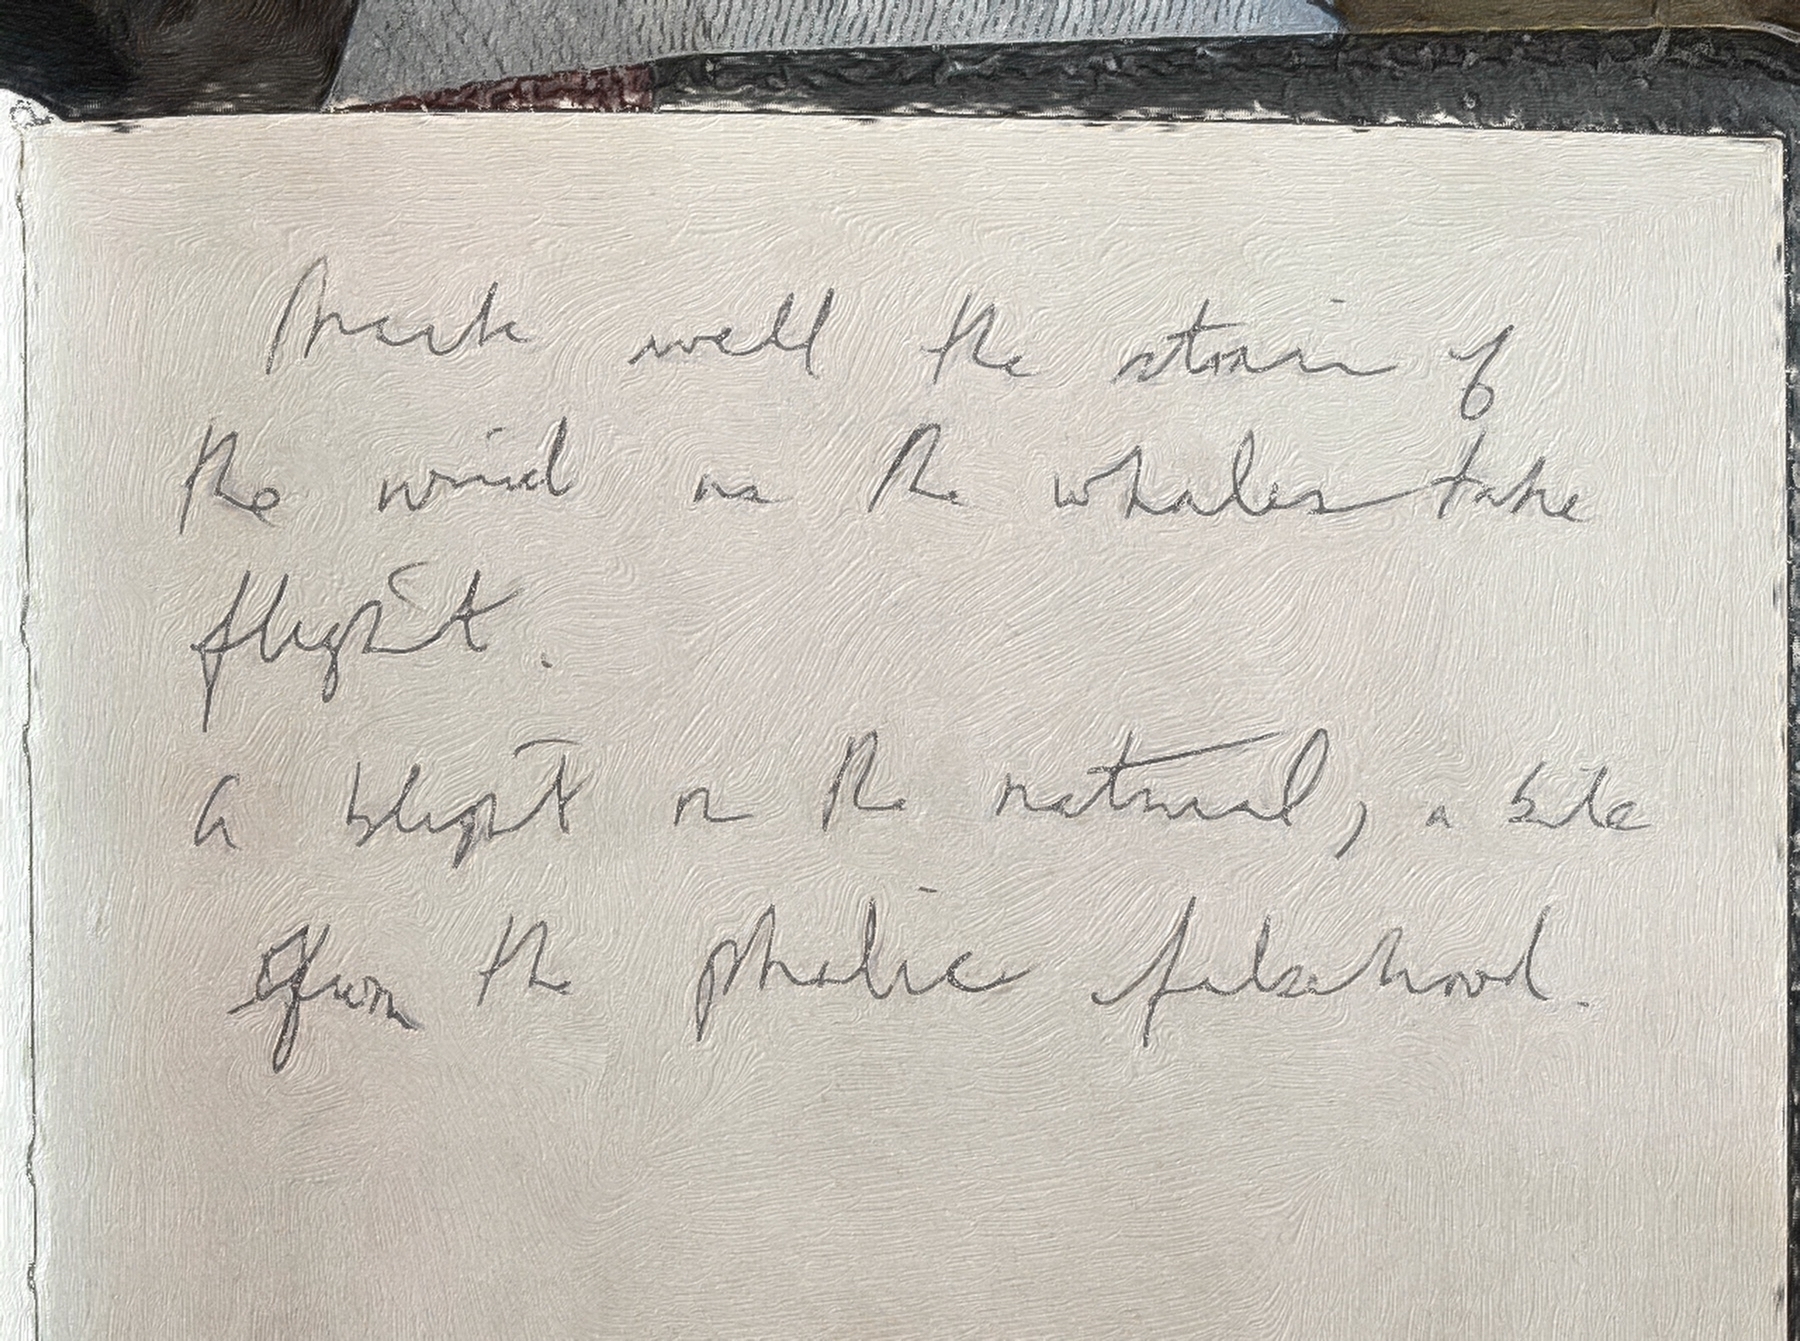 Mark well the strain of
the wind as the whales take
flight.
A blight on the natural, a bite
from the phalic falsehood.